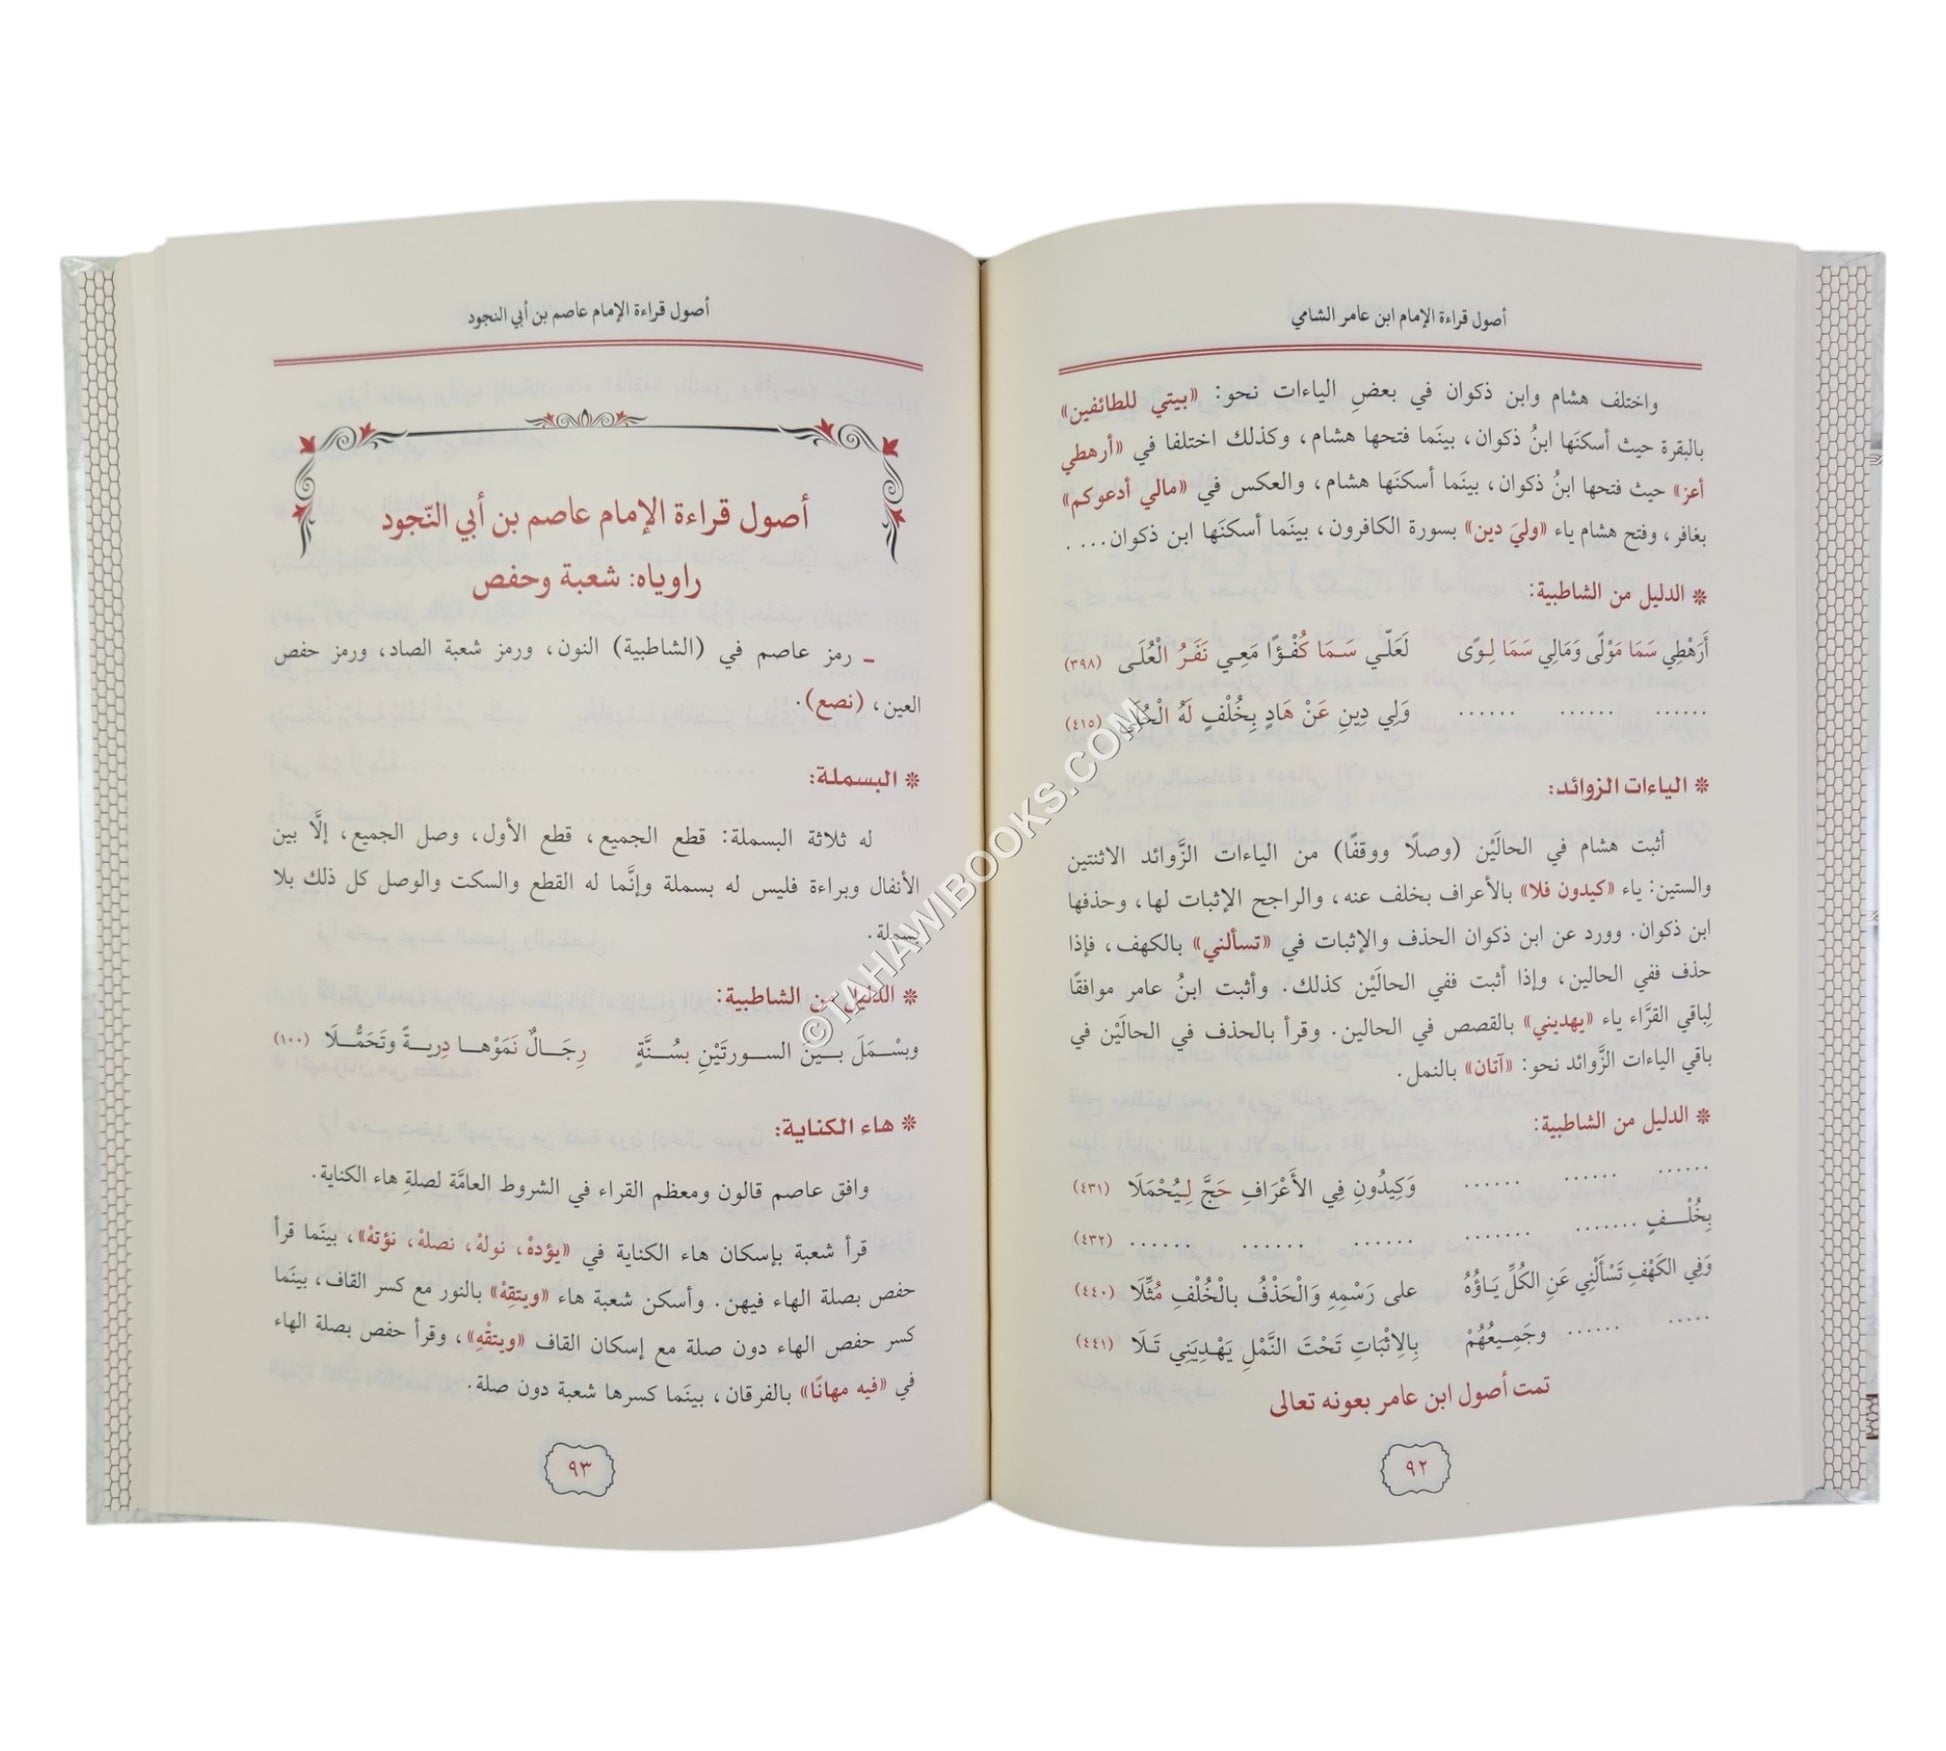 أصول قراءة الإمام ابن عامر الشامي
واختلف هشام وابن ذكوان في بعضِ الياءات نحو: «بيتي للطائفين»
بالبقرة حيث أسكنَها ابنُ ذكوان، بينَما فتحها هشام، وكذلك اختلفا في «أرهطي
أعز» حيث فتحها ابنُ ذكوان، بينَما أسكنَها هشام، والعكس في «مالي أدعوكم»
بغافر، وفتح هشام ياء «وليَ دين» بسورة الكافرون، بينَما أسكنَها ابن ذكوان....
❋ الدليل من الشاطبية:
أَرَهْطِي سَمَا مَوْلًى وَمَالِي سَمَا لِـوًى لَعَلّـي سَـمَا كُفْـؤًا مَعِـي نَفَـرُ الْعُلَـى (٣٩٨)
...... ...... ...... وَلِي دِينِ عَنْ هَادٍ بِخُلْفٍ لَهُ الْحُلَى (٤١٥)
❋ الياءات الزوائد:
أثبت هشام في الحالَيْن (وصلًا ووقفًا) من الياءات الزَّوائد الاثنتين
والستين: ياء «كيدون فلا» بالأعراف بخلف عنه، والراجح الإثبات لها، وحذفها
ابن ذكوان. وورد عن ابن ذكوان الحذف والإثبات في «تسألني» بالكهف، فإذا
حذف ففي الحالين، وإذا أثبت ففي الحالَيْن كذلك. وأثبت ابنُ عامر موافقًا
لِباقي القرَّاء ياء «يهديني» بالقصص في الحالين. وقرأ بالحذف في الحالَيْن في
باقي الياءات الزَّوائد نحو: «آتان» بالنمل.
❋ الدليل من الشاطبية:
...... ...... ...... وَكِيدُونِ فِي الأَعْرَافِ حَجَّ لِـيُحْمَلَا (٤٣١)
بِخُلْـــفٍ ....... ....... ...... ...... ...... (٤٣٢)
وَفِي الكَهْفِ تَسْأَلْنِي عَنِ الكُلِّ يَـاؤُهُ على رَسْمِهِ وَالْحَذْفُ بالْخُلْفِ مُثِّلَا (٤٤٠)
..... ...... ...... وجَمِـيعُهُمْ بِالِاثْبَاتِ تَحْتَ النَّمْلِ يَهْدِيَنِي تَـلَا (٤٤١)
تمت أصول ابن عامر بعونه تعالى
٩٢
أصول قراءة الإمام عاصم بن أبي النجود
أصول قراءة الإمام عاصم بن أبي النّجود
راوياه: شعبة وحفص
ـ رمز عاصم في (الشاطبية) النون، ورمز شعبة الصاد، ورمز حفص
العين، (نصع).
❋ البسملة:
له ثلاثة البسملة: قطع الجميع، قطع الأول، وصل الجميع، إلَّا بين
الأنفال وبراءة فليس له بسملة وإنَّما له القطع والسكت والوصل كل ذلك بلا
بسملة.
❋ الدليل من الشاطبية:
وبسْـــمَلَ بـــينَ الســـورتَيْنِ بسُـــنَّةٍ رِجَـــالٌ نَمَوْهـــا دِريـــةً وتَحَمُّـــلَا (١٠٠)
❋ هاء الكناية:
وافق عاصم قالون ومعظم القراء في الشروط العامَّة لصلةِ هاء الكناية.
قرأ شعبة بإسكان هاء الكناية في «يؤدهْ، نولهْ، نصلهْ، نؤتهْ»، بينَما قرأ
حفص بصلة الهاء فيهن. وأسكن شعبة هاء «ويتقِهْ» بالنور مع كسر القاف، بينَما
كسر حفص الهاء دون صلة مع إسكان القاف «ويتقْهِ»، وقرأ حفص بصلة الهاء
في «فيه مهانًا» بالفرقان، بينَما كسرها شعبة دون صلة.
٩٣
©TAHAWIBOOKS.COM